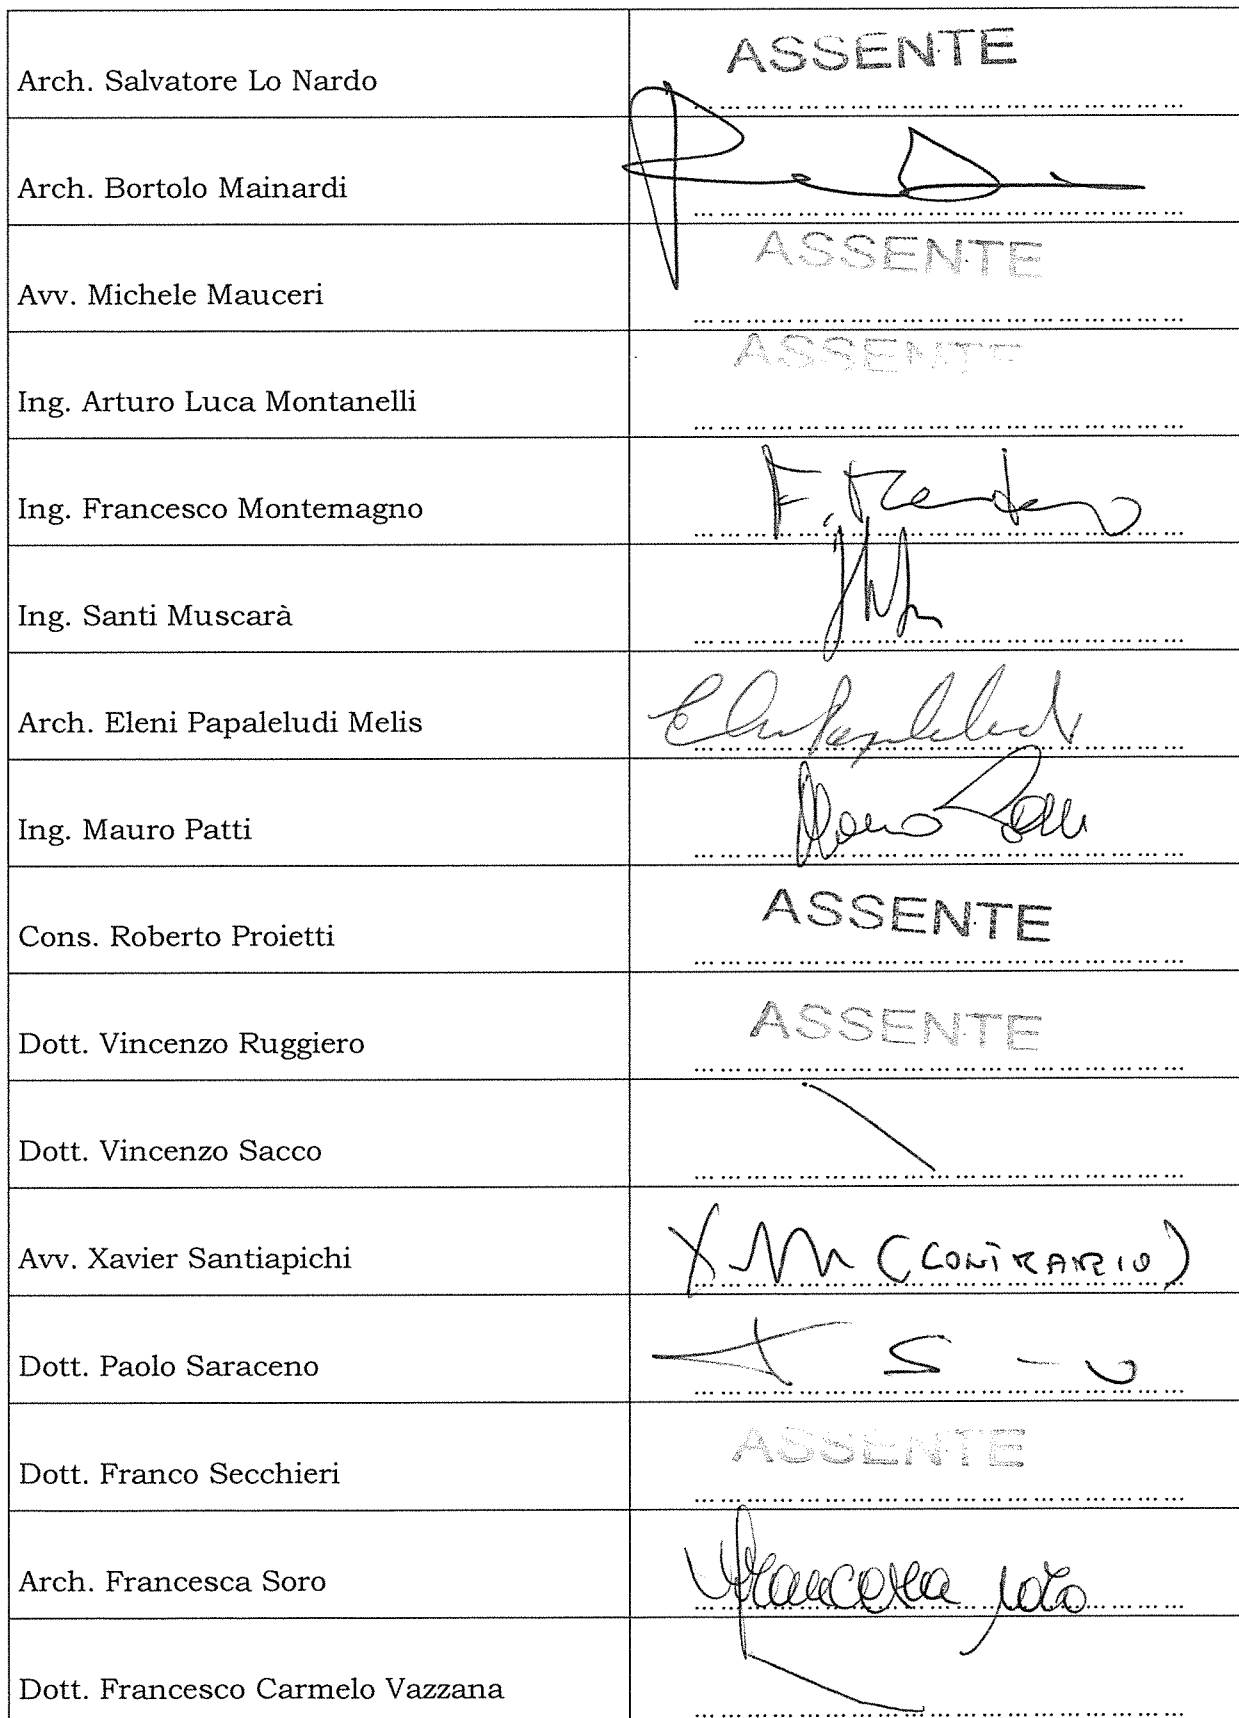 Arch. Salvatore Lo Nardo
ASSENTE
Arch. Bortolo Mainardi
Avv. Michele Mauceri
ASSENTE
Ing. Arturo Luca Montanelli
ASSENTE
Ing. Francesco Montemagno
Ing. Santi Muscarà
Arch. Eleni Papaleludi Melis
Ing. Mauro Patti
Cons. Roberto Proietti
ASSENTE
Dott. Vincenzo Ruggiero
ASSENTE
Dott. Vincenzo Sacco
Avv. Xavier Santiapichi
(CONTRARIO)
Dott. Paolo Saraceno
Dott. Franco Secchieri
ASSENTE
Arch. Francesca Soro
Francesca Soro
Dott. Francesco Carmelo Vazzana